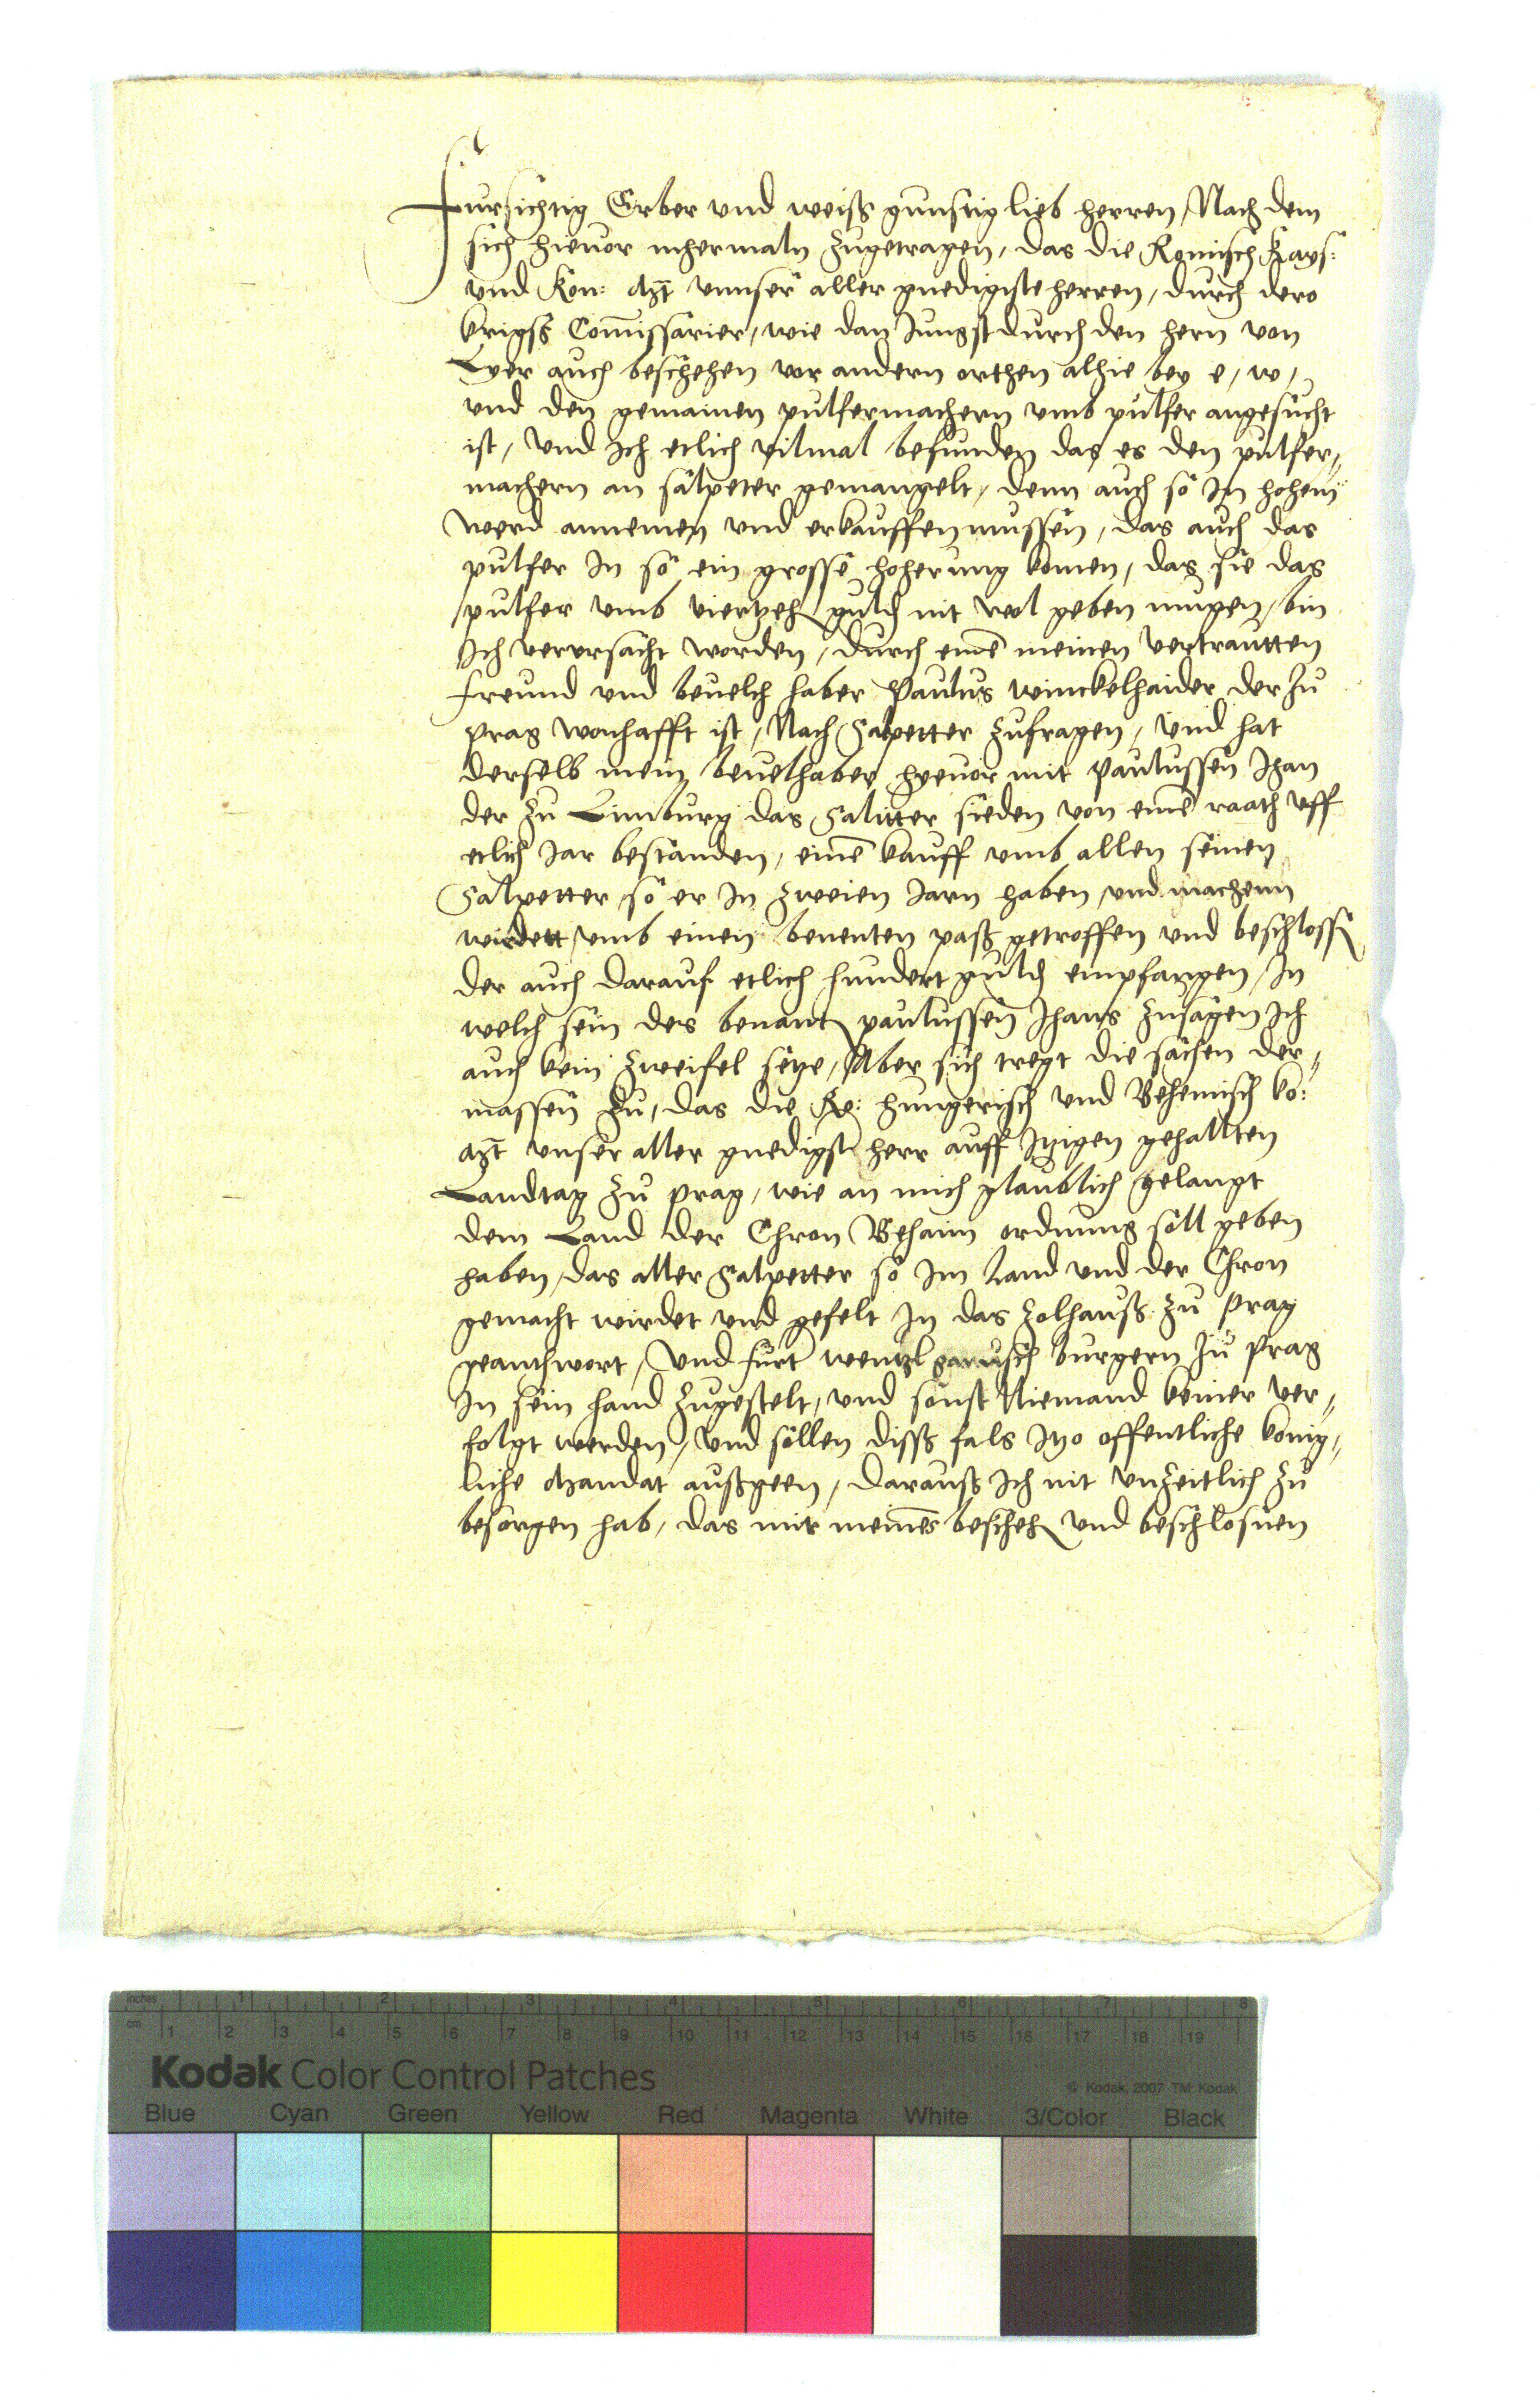 Fursichtig Erber vnd weiß gunstig lieb herren, Nach dem
sich hieuor mhermaln zugetragen, das die Romisch Kays:
vnd Kon: Mt vnnser aller gnedigiste herren, durch dero
kriegß Comissarier, wie dan Jungst durch den hern von
Lyer auch beschehen vor andern orthen alhie bey e, w,
vnd den gemainen pulfermachern vmb pulfer angesucht
ist, Vnd Ich etlich vilmal befunden das es den pulfer„
machern an salpeter gemangelt, denn auch so In hohem
werd annemen vnd erkauffen mussen, das auch das
pulfer In so ein grosse hoherung komen, das sie das
pulfer vmb viertzeh guld nit wol geben mugen, bin
Ich vervrsacht worden, durch eine meinen vertrautten
freund vnd beuelch haber Paulus winckelhaider der zu
Prag wonhafft ist, Nach Salpetter zufragen, vnd hat
derselb mein beuelhaber hyeuor mit Paulussen Ihan
der zu Limburg das Salitter sieden von eine raath vff
etlich Jar bestanden, eine kauff vmb allen seinen
Salpetter so er In zweien Jarn haben vnd machenn
wirdett, vmb einen benenten paß getroffen vnd beschlossn
der auch darauf etlich hundert guld empfangen, In
welch sein des benant paulussen Ihans zusagen Ich
auch kein zweifel setze, Aber sich tregt die sachen der„
massen zu, das die Ro: hungerisch vnd Behemisch ko:
Mt vnser aller gnedigst herr auff Itzigen gehallten
Landtag zu prag, wie an mich glaublich gelangt
dem Land der Chron Behaim ordnung soll geben
haben, das aller Salpetter so Im Land vnd der Chron
gemacht wirdet vnd gefelt In das Zolhauß zu prag
geanthwort, Vnd furt wentzl burgern zu prag
In sein hand zugestelt, vnd sonst Niemand keiner ver„
folgt werden, vnd sollen disß fals Itzo offentliche konig„
liche Mandat außgeen, darauß Ich nit vnzeitlich zu
besorgen hab, das mir meines bescheh vnd beschlosnen
inches 1 2 3 4 5 6 7 8
cm 1 2 3 4 5 6 7 8 9 10 11 12 13 14 15 16 17 18 19
Kodak Color Control Patches
© Kodak, 2007 TM: Kodak
Blue Cyan Green Yellow Red Magenta White 3/Color Black